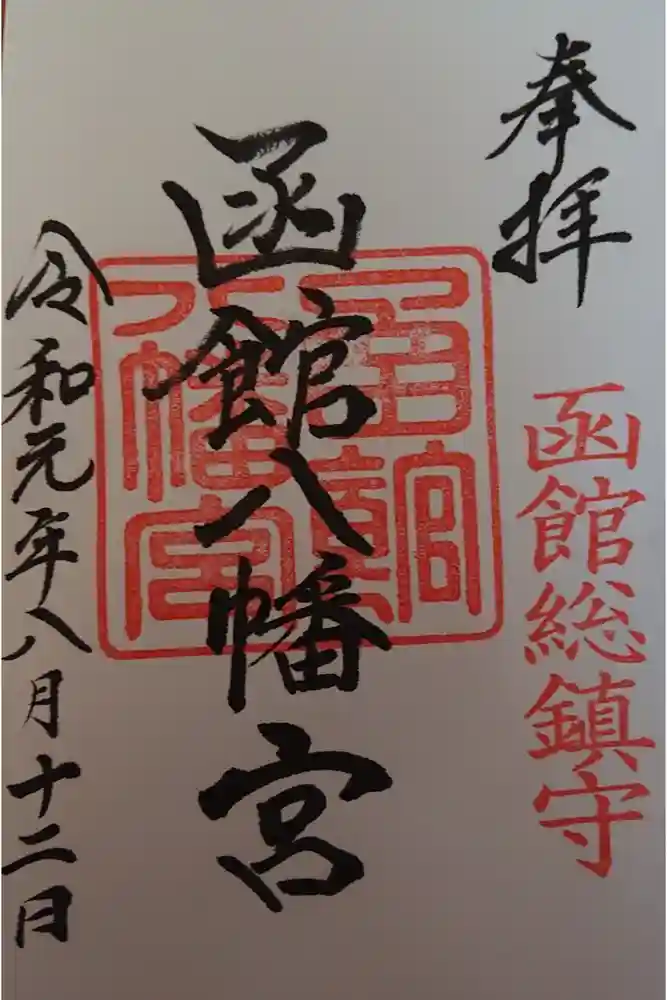 奉拝
函館総鎮守
函館八幡宮
函館八幡宮
令和元年八月十二日